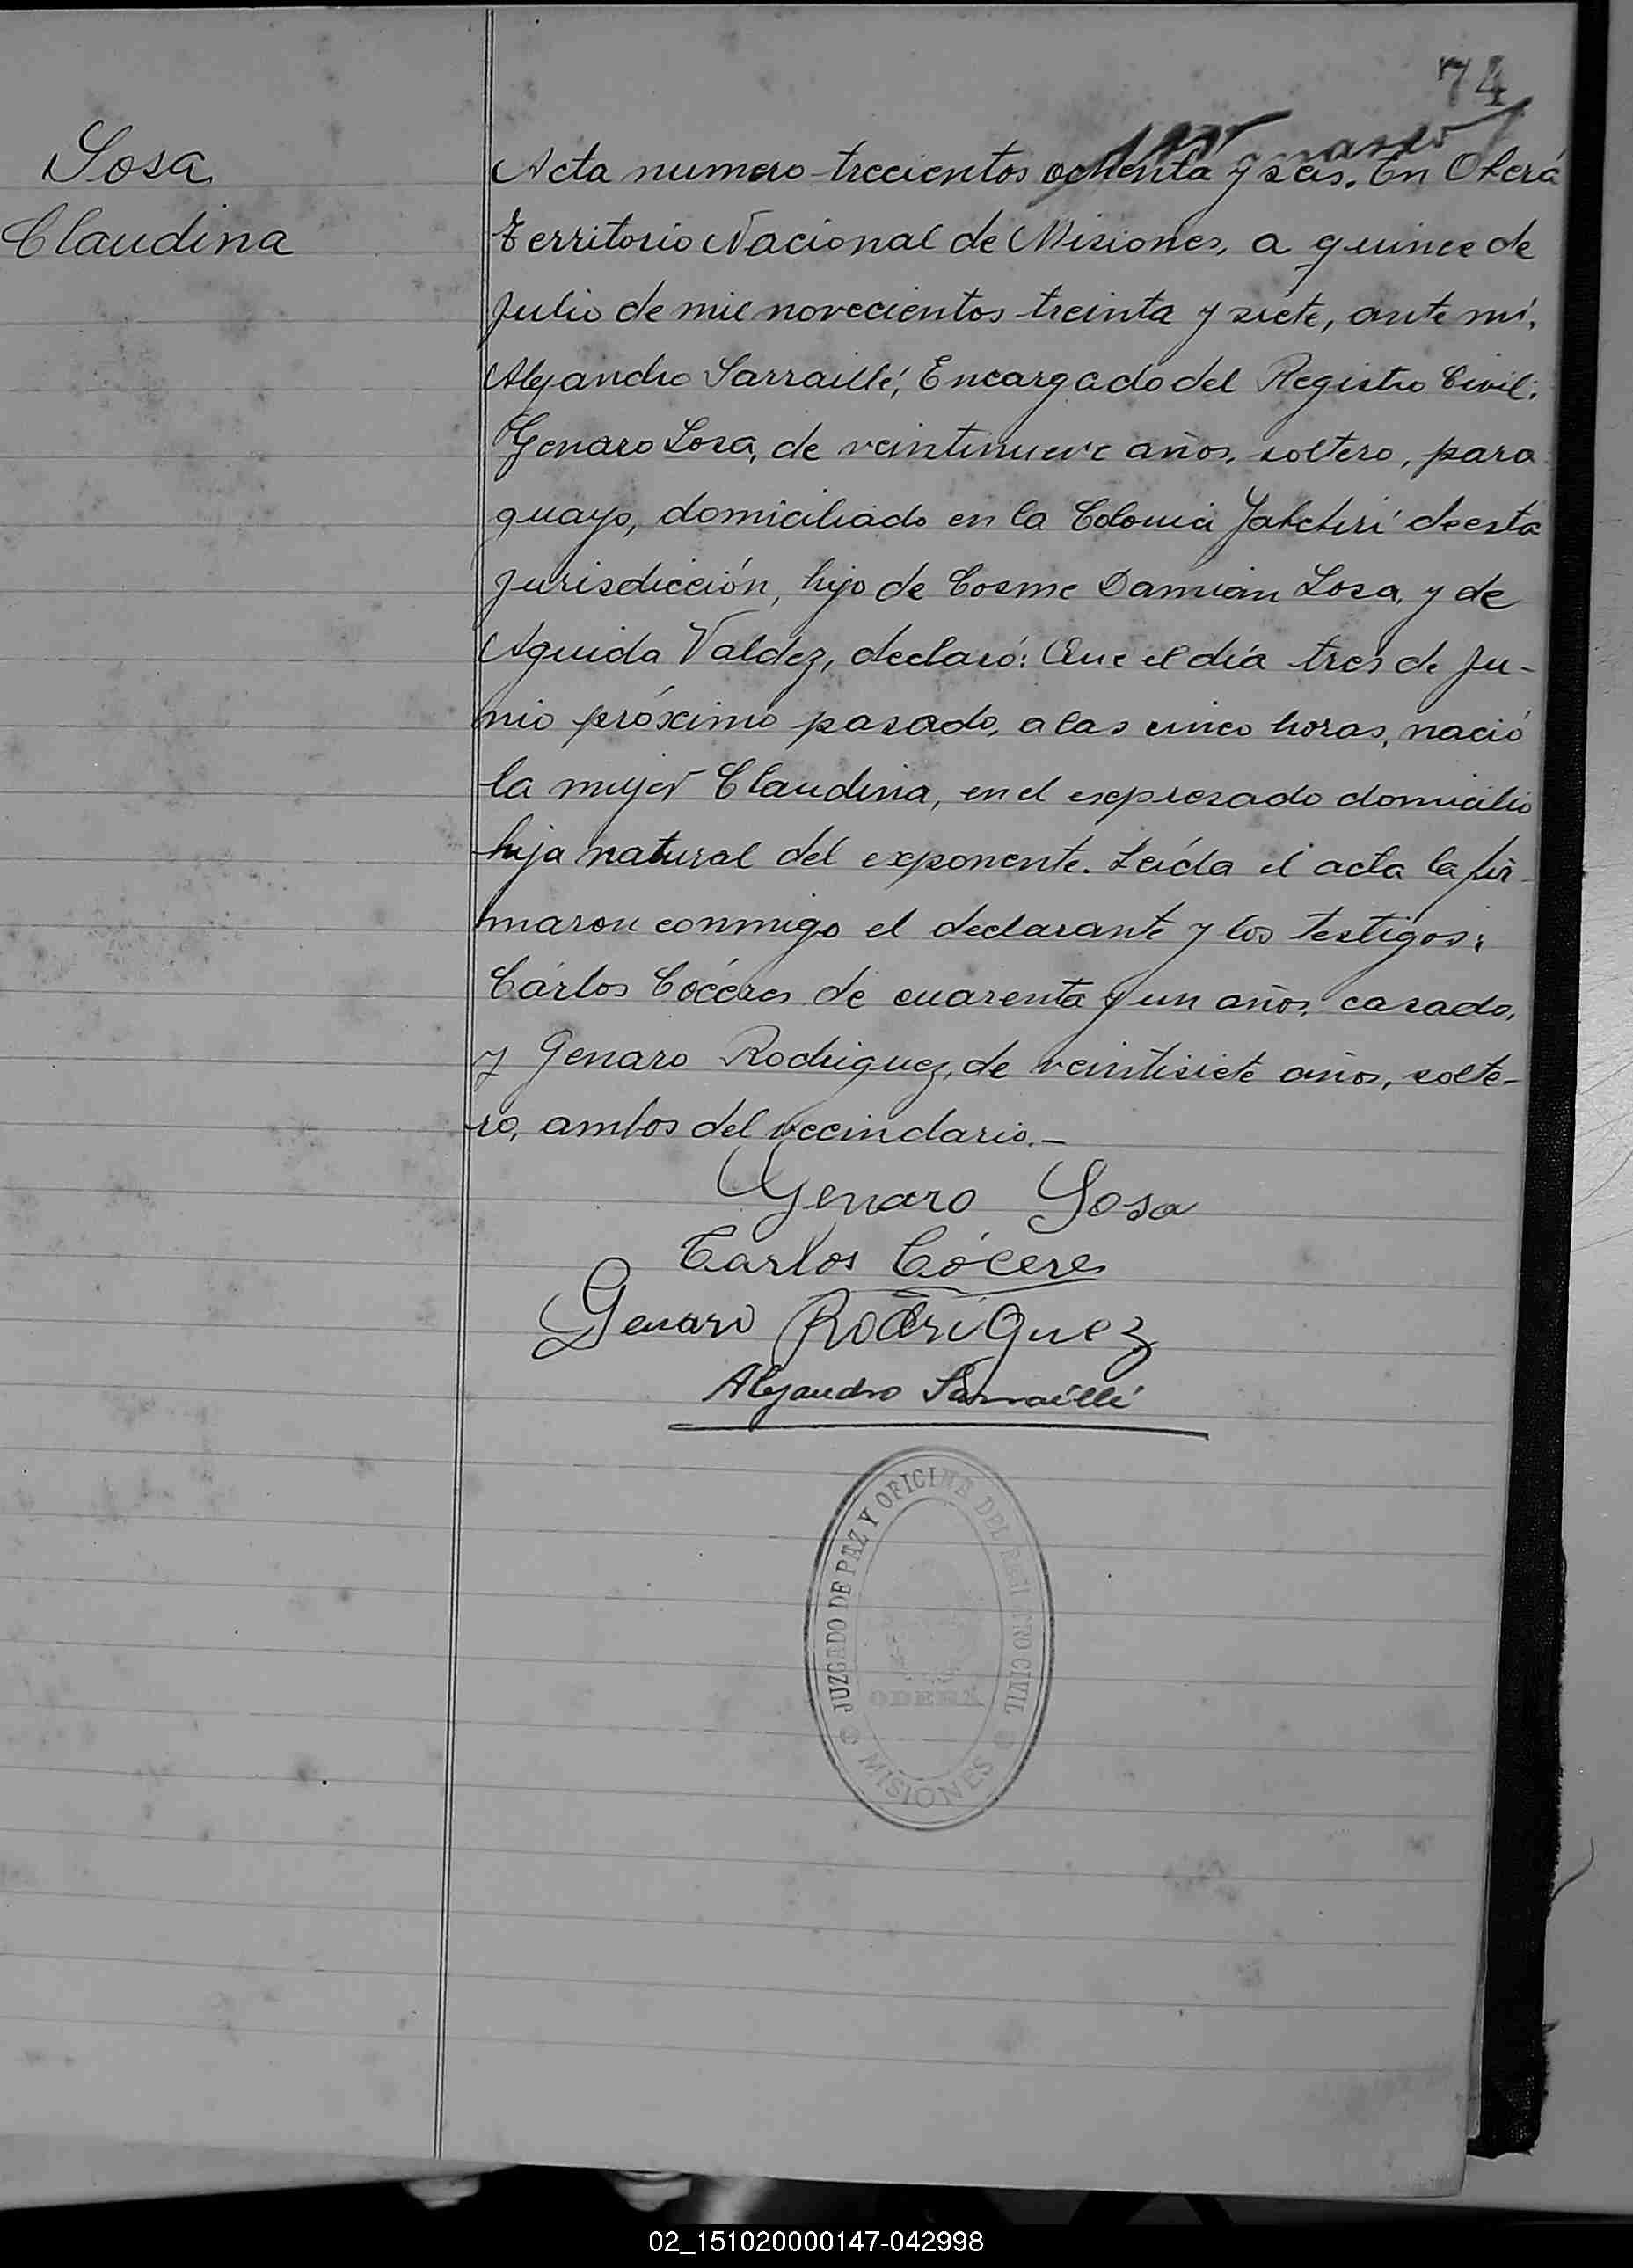 74
Sosa
Claudina
Acta numero trecientos ochenta y seis. En Oberá
Territorio Nacional de Misiones, a quince de
Julio de mil novecientos treinta y siete, ante mí,
Alejandro Sarraillé, Encargado del Registro Civil:
Genaro Sosa, de veintinueve años, soltero, para
guayo, domiciliado en la Colonia de esta
jurisdicción, hijo de Cosme Damian Sosa, y de
Aguida Valdez, declaró: Que el día tres de Ju-
nio próximo pasado, a las cinco horas, nació
la mujer Claudina, en el expresado domicilio
hija natural del exponente. Leída el acta la fir-
maron conmigo el declarante y los testigos:
Cárlos Cóceres de cuarenta y un años, casado,
y Genaro Rodriguez, de veintisiete años, solte-
ro, ambos del vecindario.—
Genaro Sosa
Carlos Cóceres
Genaro Rodriguez
Alejandro Sarraillé
JUZGADO DE PAZ Y OFICINA DEL REGISTRO CIVIL
OBERÁ
MISIONES
02_151020000147-042998